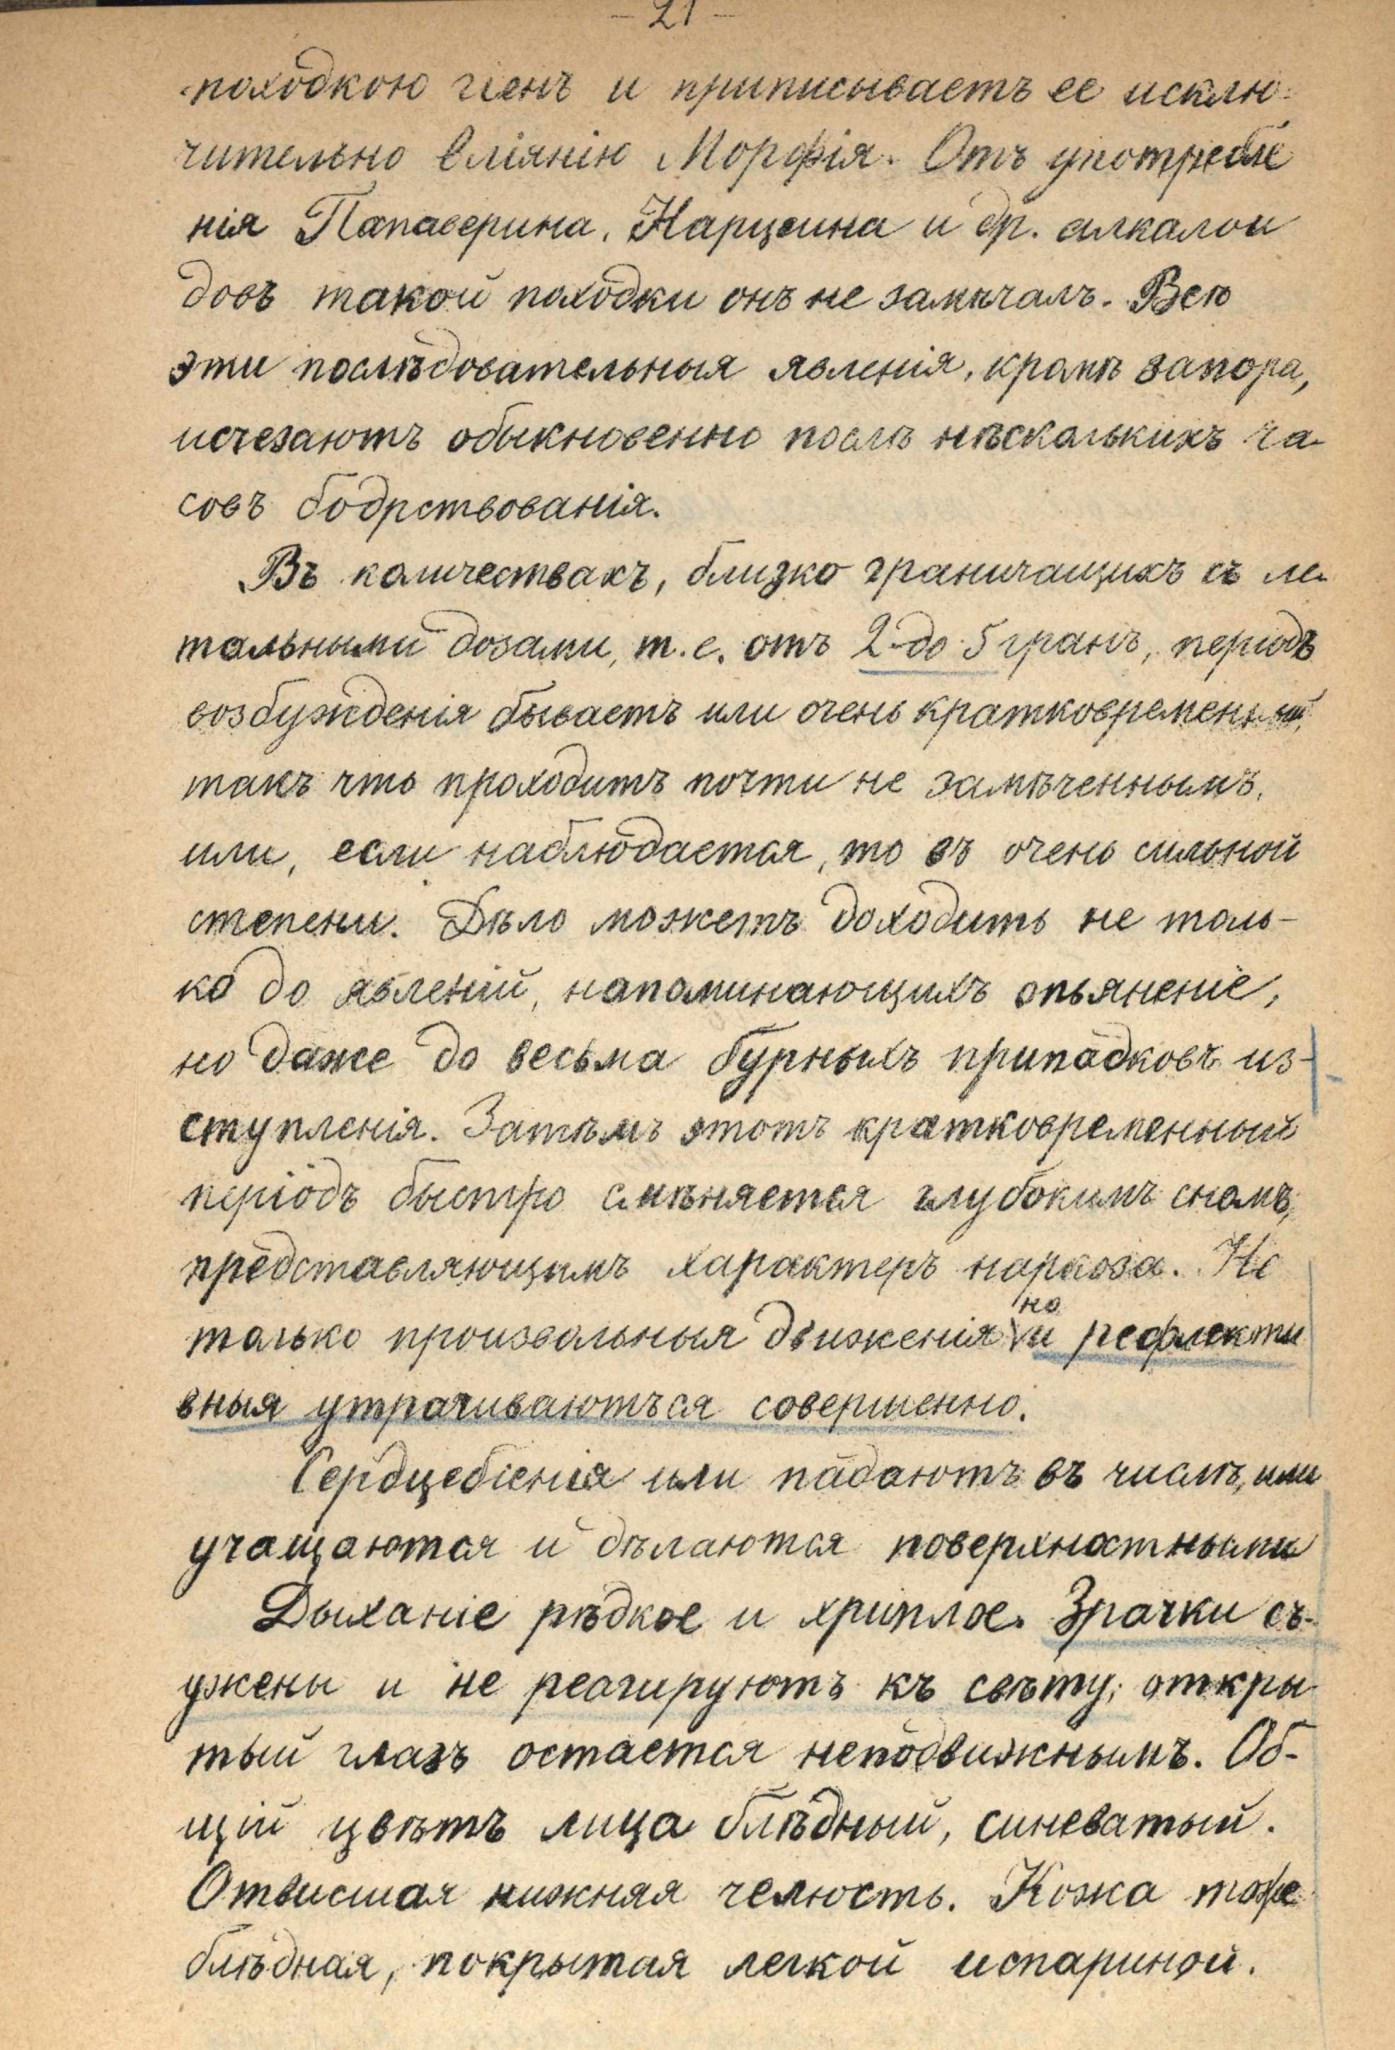 - 21 -
походкою гіенъ и приписываетъ ее исклю-
чительно вліянію Морфія. Отъ употребле
нія Папаверина, Нарцеина и др. алкалои
довъ такой походки онъ не замѣчалъ. Всѣ
эти послѣдовательныя явленія, кромѣ запора,
исчезаютъ обыкновенно послѣ нѣсколькихъ ча-
совъ бодрствованія.
Въ количествахъ, близко граничащихъ съ ле-
тальными дозами, т.е. отъ 2-до 5 гранъ, періодъ
возбужденія бываетъ или очень кратковременный,
такъ что проходитъ почти не замѣченнымъ,
или, если наблюдается, то въ очень сильной
степени. Дѣло можетъ доходить не толь-
ко до явленій, напоминающихъ опьяненіе,
но даже до весьма бурныхъ припадковъ из-
ступленія. Затѣмъ этотъ кратковременный
періодъ быстро смѣняется глубокимъ сномъ,
представляющимъ характеръ наркоза. Не
только произвольныя движенія но и рефлекти
вныя утрачиваютъся совершенно.
Сердцебіенія или падаютъ въ числѣ, или
учащаются и дѣлаются поверхностными
Дыханіе рѣдкое и хриплое. Зрачки съ-
ужены и не реагируютъ къ свѣту; откры-
тый глазъ остается неподвижнымъ. Об-
щій цвѣтъ лица блѣдный, синеватый.
Отвисшая нижняя челюсть. Кожа тоже
блѣдная, покрытая легкой испариной.